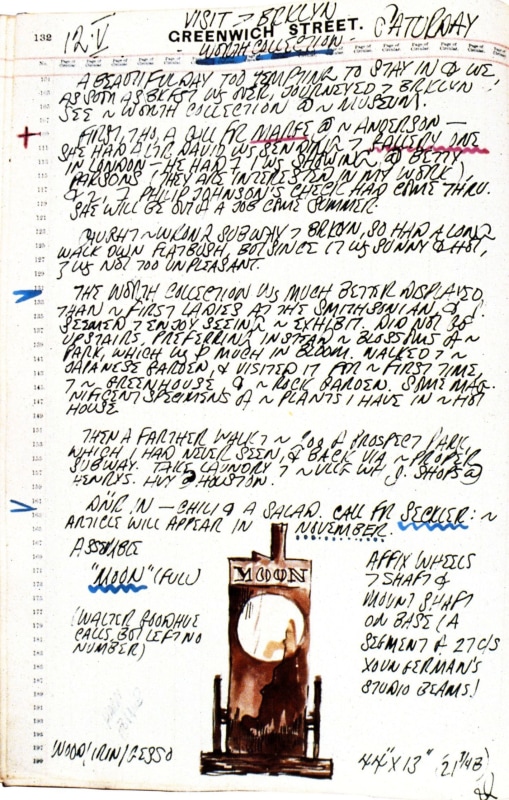 132
12·V
VISIT > BRKLYN
GREENWICH STREET.
SATURDAY
WORTH COLLECTION
A BEAUTIFUL DAY TOO TEMPTING TO STAY IN & WE,
AS SOON AS BKFST WS OVER, JOURNEYED > BRKLYN
SEE ~ WORTH COLLECTION @ ~ MUSEUM.
FIRST, THO, A CALL FR @ ~ ANDERSON —
SHE HAD A LTR DAVID WS SENDING > GALLERY ONE
IN LONDON (HE HAD WS SHOWING @ BETTY
PARSONS) THEY ARE INTERESTED IN MY WORK,
PHILIP JOHNSON'S CHECK HAD COME THRU.
SHE WILL BE OUT A JOB COME SUMMER
CAUGHT ~ WRONG SUBWAY > BRKLYN, SO HAD A LONG
WALK DOWN FLATBUSH, BUT SINCE IT WS SUNNY & HOT,
WS NOT TOO UNPLEASANT.
THE WORTH COLLECTION WS MUCH BETTER DISPLAYED
THAN ~ FIRST LADIES AT THE SMITHSONIAN, & J.
SEEMED > ENJOY SEEING ~ EXHIBIT. DID NOT GO
UPSTAIRS, PREFERRING INSTEAD ~ BLOSSOMS OF ~
PARK, WHICH WS MUCH IN BLOOM. WALKED > ~
JAPANESE GARDEN, & VISITED IT FOR ~ FIRST TIME,
> ~ GREENHOUSE, & ~ ROCK GARDEN. SOME MAG-
NIFICENT SPECIMENS OF ~ PLANTS I HAVE IN ~ HOT
HOUSE
THEN A FARTHER WALK > ~ ZOO OF PROSPECT PARK
WHICH I HAD NEVER SEEN, & BACK VIA ~ PROPER
SUBWAY. TAKE LAUNDRY > ~ VLGE WH J. SHOPS @
HENRYS. HVY @ HOUSTON.
DNR IN — CHILI & A SALAD. CALL FR SECKLER: ~
ARTICLE WILL APPEAR IN NOVEMBER.
ASSEMBLE
"MOON" (FULL)
(WALTER GOODHUE
CALLS, BUT LEFT NO
NUMBER)
MOON
AFFIX WHEELS
> SHAFT &
MOUNT SHAFT
ON BASE (A
SEGMENT OF 27 C/S
YOUNGERMAN'S
STUDIO BEAMS)
WOOD/IRON/GESSO
44"X13" (21 7/48)